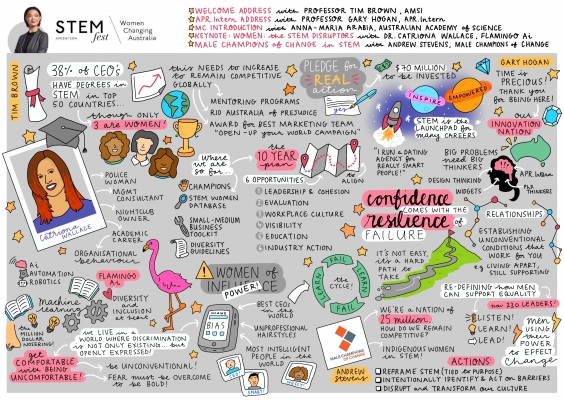 STEM
fest
Women
Changing
Australia
WELCOME ADDRESS with PROFESSOR TIM BROWN, AMSI
APR.Intern ADDRESS with PROFESSOR GARY HOGAN, APR.Intern
MC INTRODUCTION with ANNA-MARIA ARABIA, AUSTRALIAN ACADEMY OF SCIENCE
KEYNOTE: WOMEN: THE STEM DISRUPTORS with DR. CATRIONA WALLACE, FLAMINGO Ai
MALE CHAMPIONS OF CHANGE IN STEM with ANDREW STEVENS, MALE CHAMPIONS OF CHANGE
TIM BROWN
38% OF CEO's
HAVE DEGREES IN
STEM IN TOP
50 COUNTRIES...
though only
3 are WOMEN!
this NEEDS to INCREASE
to REMAIN COMPETITIVE
GLOBALLY
MENTORING PROGRAMS
RID AUSTRALIA OF PREJUDICE
AWARD for BEST MARKETING TEAM
"OPEN-UP YOUR WORLD CAMPAIGN"
PLEDGE for
REAL
action
yes!
$70 MILLION
to BE INVESTED
INSPIRE
EMPOWERED
STEM is the
LAUNCHPAD for
many CAREERS
GARY HOGAN
TIME is
PRECIOUS!
THANK you
for BEING HERE!
our
INNOVATION
NATION
Catriona
WALLACE
POLICE
WOMAN
MGMT
CONSULTANT
NIGHTCLUB
OWNER
ACADEMIC
CAREER
ORGANISATIONAL
behaviour
Where
we are
so far
CHAMPIONS
STEM WOMEN
DATABASE
SMALL-MEDIUM
BUSINESS
TOOLKIT
DIVERSITY
GUIDELINES
the
10 YEAR
plan
to
ALIGN
6 OPPORTUNITIES
1 LEADERSHIP & COHESION
2 EVALUATION
3 WORKPLACE CULTURE
4 VISIBILITY
5 EDUCATION
6 INDUSTRY ACTION
"I RUN a DATING
AGENCY for
REALLY SMART
PEOPLE!"
BIG PROBLEMS
NEED BIG
THINKERS
DESIGN THINKING
WIDGETS
APR.Intern
PhD
THINKERS
confidence
COMES WITH THE
resilience of
FAILURE
IT'S NOT EASY,
it's a HARD
PATH to
TAKE
RELATIONSHIPS
ESTABLISHING
UNCONVENTIONAL
CONDITIONS that
WORK for YOU
eg LIVING APART,
STILL SUPPORTING
RE-DEFINING how MEN
CAN SUPPORT EQUALITY
now 230 LEADERS!
Ai
AUTOMATION
ROBOTICS
FLAMINGO
Ai
Machine
learning
DIVERSITY
and
INCLUSION
at scale
the
MILLION
DOLLAR
WE LIVE in a
WORLD WHERE DISCRIMINATION
IS NOT ONLY EXISTING... but
OPENLY EXPRESSED!
get
COMFORTABLE
with BEING
UNCOMFORTABLE!
be UNCONVENTIONAL!
FEAR must be OVERCOME
to be BOLD!
WOMEN of
INFLUENCE
POWER!
BIAS
BEST CEO's in
the WORLD
UNPROFESSIONAL
HAIRSTYLE!
MOST INTELLIGENT
PEOPLE in the
WORLD
FAIL
LEARN
FAIL
LEARN
the
cycle!
MALE CHAMPIONS
OF CHANGE
ANDREW
Stevens
WE'RE a NATION of
25 million,
HOW DO WE REMAIN
COMPETITIVE?
INDIGENOUS WOMEN
in STEM!
LISTEN!
LEARN!
LEAD!
men
USING
their
POWER
to EFFECT
Change
ACTIONS:
REFRAME STEM (TIED to PURPOSE)
INTENTIONALLY IDENTIFY & ACT on BARRIERS
DISRUPT and TRANSFORM OUR CULTURE